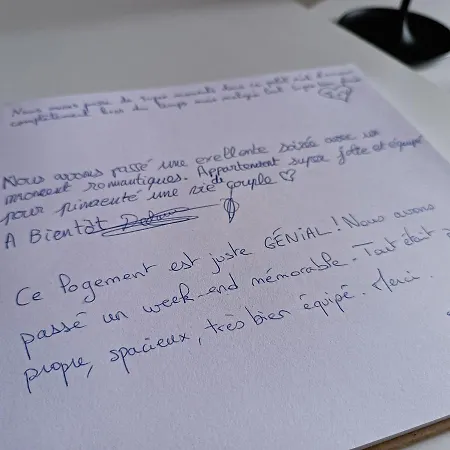 Nous avons passé de supers moments dans ce petit nid d'amour
complètement hors du temps
Nous avons passé une exellente soirée avec un
moment romantiques. Appartement super jolie et équipé
pour pimenté une vie de couple ♡
A Bientôt
Ce logement est juste GÉNIAL! Nous avons
passé un week-end mémorable. Tout était
propre, spacieux, très bien équipé. Merci.